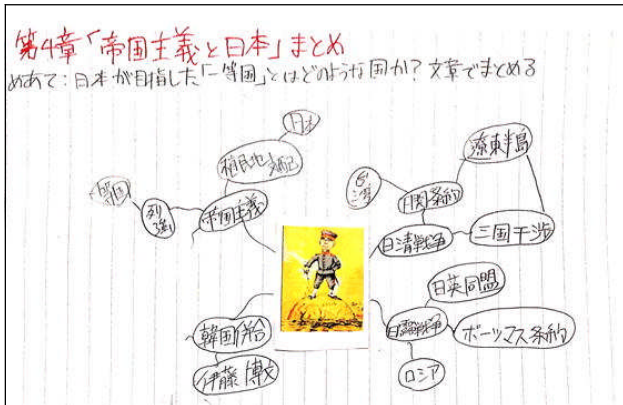 第4章「帝国主義と日本」まとめ
めあて:日本が目指した「一等国」とはどのような国か?文章でまとめる
日本
植民地支配
列強
帝国主義
遼東半島
台湾
下関条約
日清戦争
三国干渉
日英同盟
日露戦争
ポーツマス条約
ロシア
韓国併合
伊藤博文